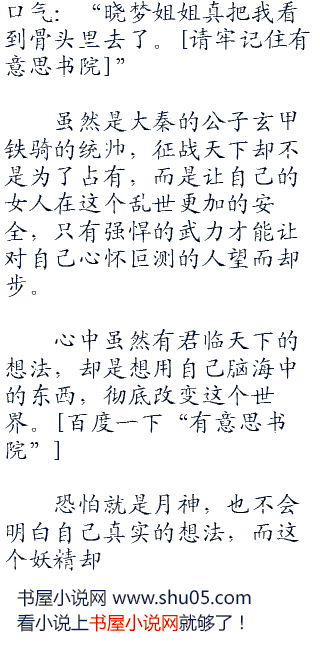 口气：“晓梦姐姐真把我看
到骨头里去了。[请牢记住有
意思书院]”
虽然是大秦的公子玄甲
铁骑的统帅，征战天下却不
是为了占有，而是让自己的
女人在这个乱世更加的安
全，只有强悍的武力才能让
对自己心怀叵测的人望而却
步。
心中虽然有君临天下的
想法，却是想用自己脑海中
的东西，彻底改变这个世
界。[百度一下“有意思书
院”]
恐怕就是月神，也不会
明白自己真实的想法，而这
个妖精却
书屋小说网 www.shu05.com
看小说上书屋小说网就够了！